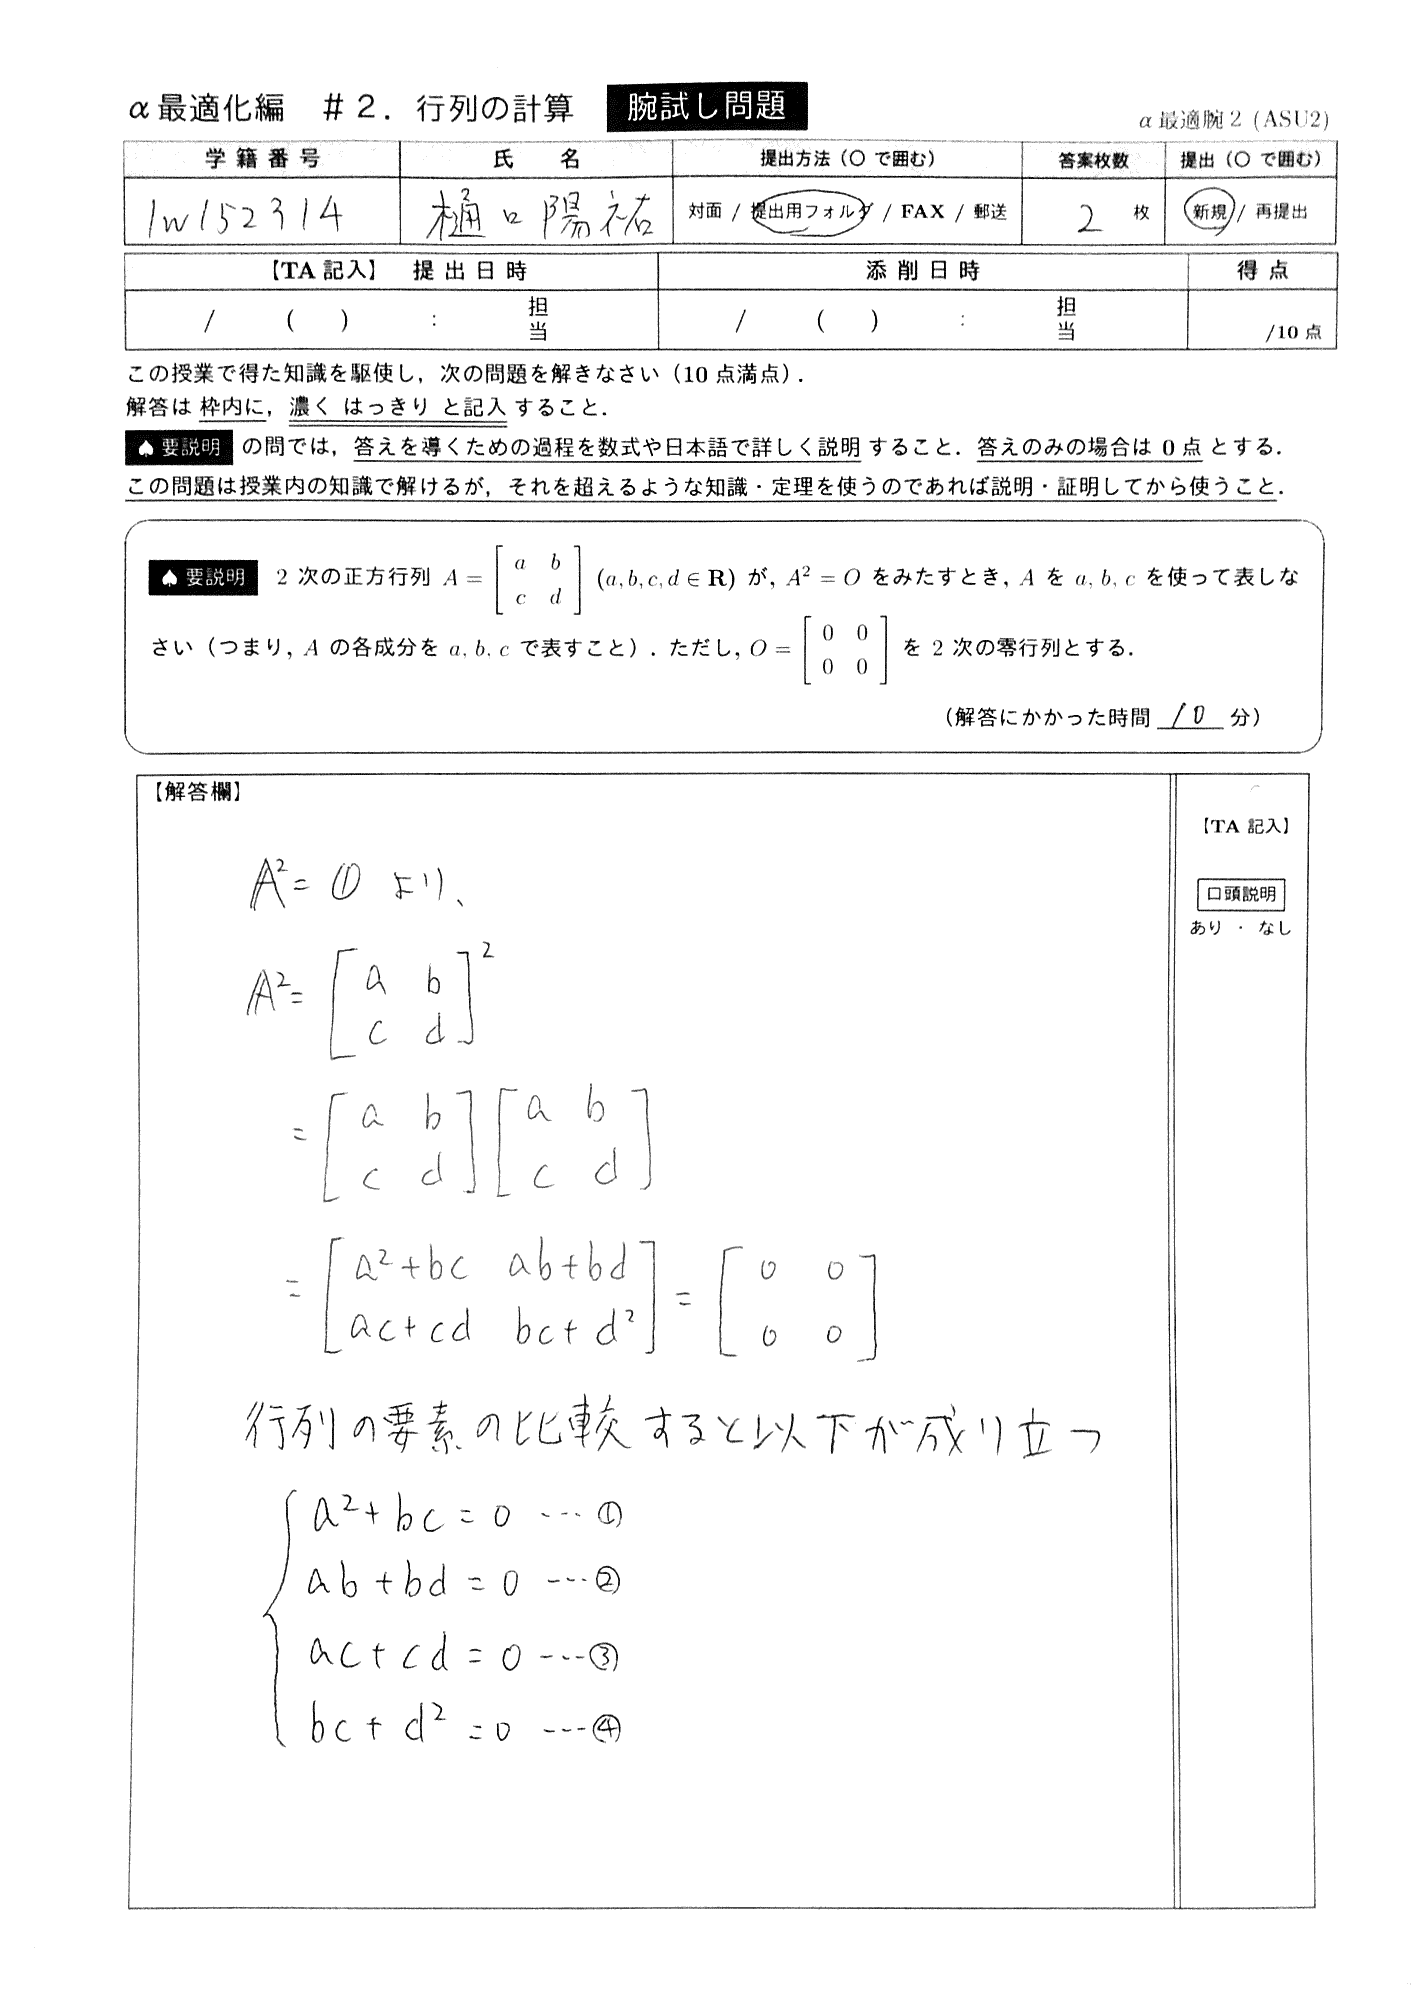 α最適化編 ＃２．行列の計算 腕試し問題 α最適腕２(ASU2)
学籍番号 氏名 提出方法（○で囲む） 答案枚数 提出（○で囲む）
1w152314 樋口陽祐 対面 / 提出用フォルダ / FAX / 郵送 2 枚 新規 / 再提出
【TA 記入】 提出日時 添削日時 得点
/ ( ) : 担当 / ( ) : 担当 /10 点
この授業で得た知識を駆使し，次の問題を解きなさい（10 点満点）．
解答は 枠内に，濃く はっきり と記入 すること．
♠ 要説明 の問では，答えを導くための過程を数式や日本語で詳しく説明 すること．答えのみの場合は 0 点 とする．
この問題は授業内の知識で解けるが，それを超えるような知識・定理を使うのであれば説明・証明してから使うこと．
♠ 要説明 2 次の正方行列 A = [a b; c d] (a, b, c, d ∈ R) が，A² = O をみたすとき，A を a, b, c を使って表しな
さい（つまり，A の各成分を a, b, c で表すこと）．ただし，O = [0 0; 0 0] を 2 次の零行列とする．
（解答にかかった時間 10 分）
【解答欄】
【TA 記入】
口頭説明
あり ・ なし
A² = O より、
A² = [a b; c d]²
= [a b; c d] [a b; c d]
= [a²+bc ab+bd; ac+cd bc+d²] = [0 0; 0 0]
行列の要素の比較すると以下が成り立つ
a²+bc=0 … ①
ab+bd=0 … ②
ac+cd=0 … ③
bc+d²=0 … ④